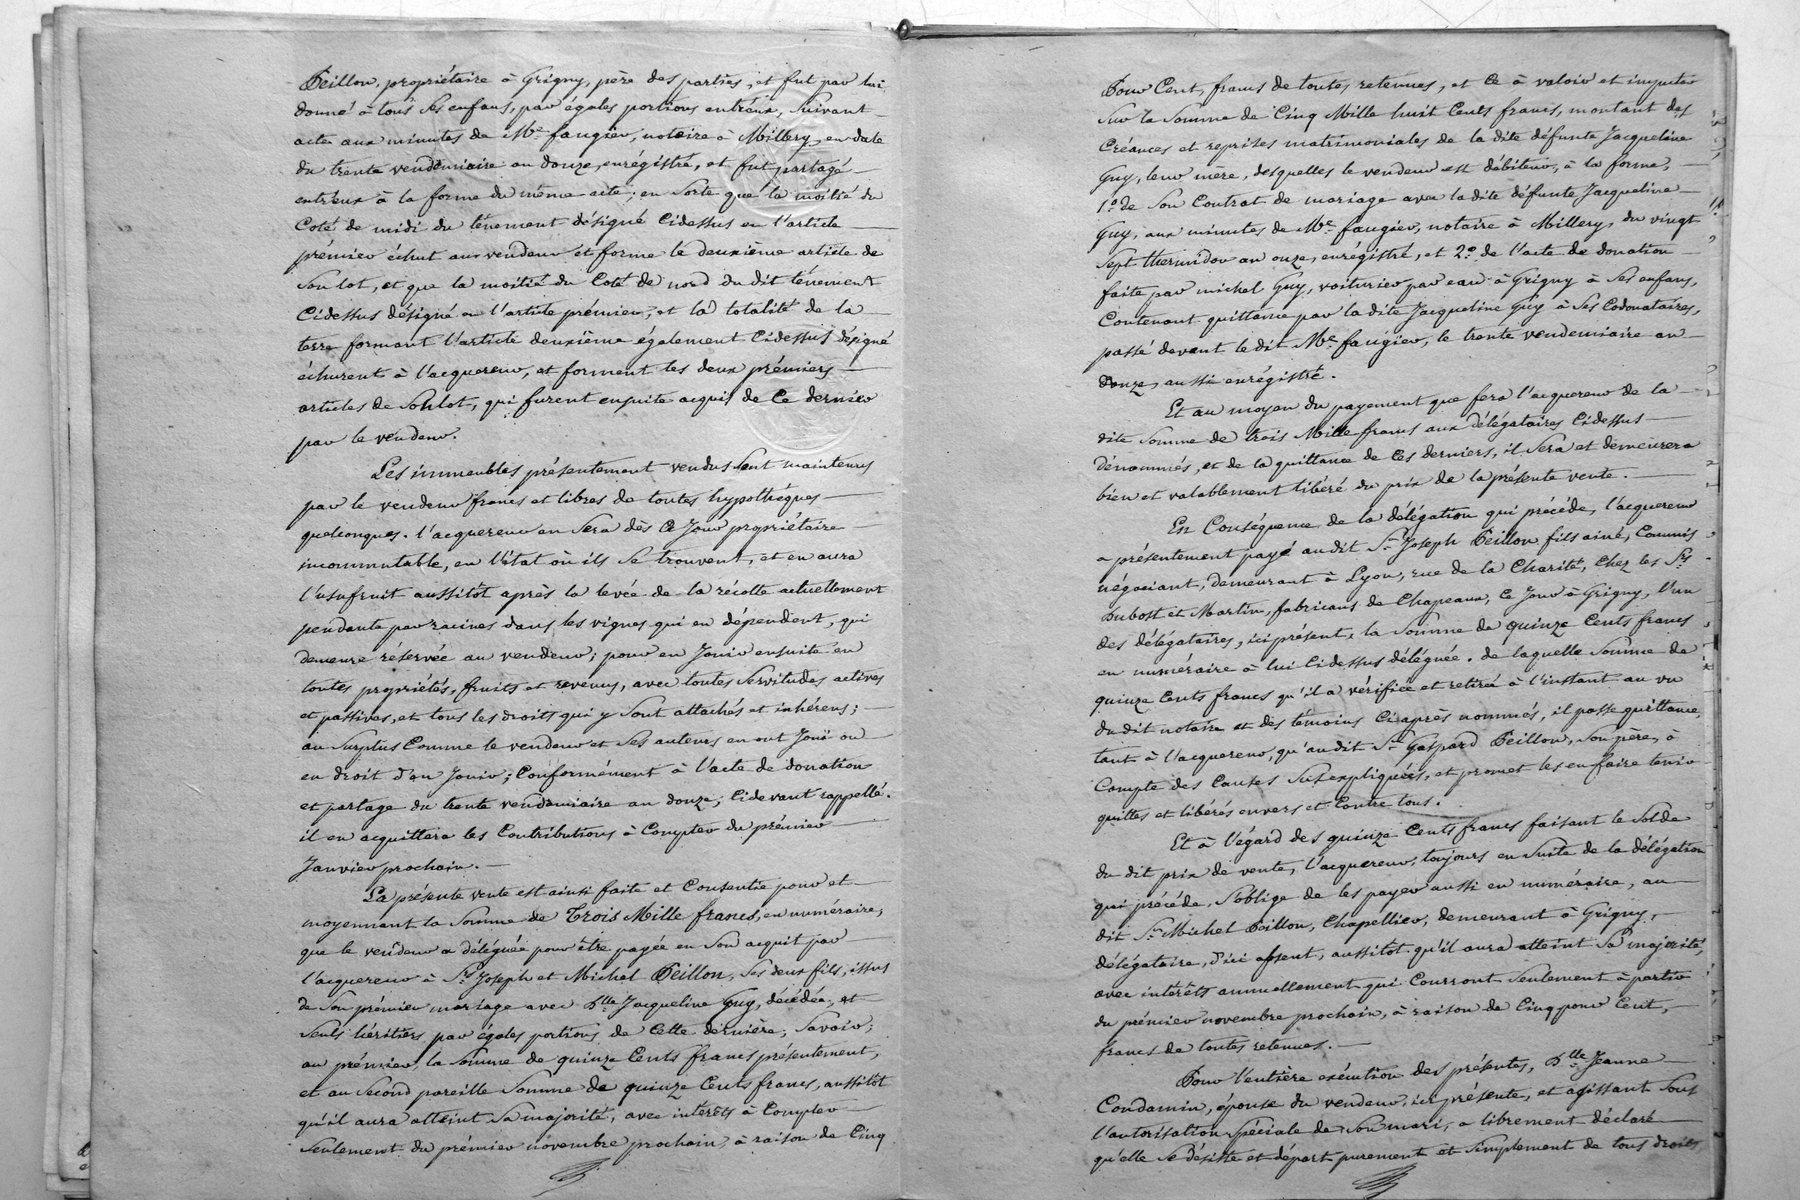 Peillon, propriétaire à Grigny, père des parties, et fut par lui
donné à tous ses enfans, par égales portions entr'eux, suivant
acte aux minutes de Me. faugier, notaire à Millery, en date
du trente vendémiaire an douze, enrégistré, et fut partagé
entr'eux à la forme du même acte; en sorte que la moitié du
Coté de midi du ténement désigné Cidessus en l'article
prémier échut au vendeur et forme le deuxième article de
son lot, et que la moitié du Coté de nord du dit ténement
Cidessus désigné en l'article prémier, et la totalité de la
terre formant l'article deuxième également Cidessus désigné
échurent à l'acquereur, et forment les deux prémiers
articles de son lot, qui furent ensuite acquis de Ce dernier
par le vendeur.
Les immeubles présentement vendus sont maintenus
par le vendeur francs et libres de toutes hypothéques
quelconques. l'acquereur en sera dès Ce Jour propriétaire
incommutable, en l'état où ils se trouvent, et en aura
l'usufruit aussitôt après la levée de la récolte actuellement
pendante par racines dans les vignes qui en dépendent, qui
demeure réservée au vendeur; pour en Jouir ensuite en
toutes propriétés, fruits et revenus, avec toutes servitudes actives
et passives, et tous les droits qui y sont attachés et inhérens;
au surplus Comme le vendeur et ses auteurs en ont Joui ou
eu droit d'en Jouir; Conformément à l'acte de donation
et partage du trente vendémiaire an douze, Cidevant rappellé.
il en acquittera les Contributions à Compter du prémier
Janvier prochain.
La présente vente est ainsi faite et Consentie pour et
moyennant la somme de Trois Mille francs, en numéraire,
que le vendeur a déléguée pour être payée en son acquit par
l'acquereur à Srs. Joseph et Michel Peillon, ses deux fils, issus
de son prémier mariage avec Dlle Jacqueline Guy, décédée, et
seuls héritiers par égales portions de Cette dernière; Savoir;
au prémier, la somme de quinze Cents francs présentement,
et au second pareille somme de quinze Cents francs, aussitôt
qu'il aura atteint sa majorité, avec intérêts à Compter
seulement du prémier novembre prochain, à raison de Cinq
Pour Cent, francs de toutes retenues, et Ce à valoir et imputer
sur la somme de Cinq Mille huit Cents francs, montant des
Créances et reprises matrimoniales de la dite défunte Jacqueline
Guy, leur mère, desquelles le vendeur est débiteur, à la forme,
1º. de son Contrat de mariage avec la dite défunte Jacqueline
Guy, aux minutes de Me. faugier, notaire à Millery, du vingt
sept thermidor an onze, enrégistré, et 2º. de l'acte de donation
faite par michel Guy, voiturier par eau à Grigny à ses enfans,
Contenant quittance par la dite Jacqueline Guy à ses Codonataires,
passé devant le dit Me. faugier, le trente vendemiaire an
douze, aussi enrégistré.
Et au moyen du payement que fera l'acquereur de la
dite somme de trois Mille francs aux délégataires Cidessus
dénommés, et de la quittance de Ces derniers, il sera et demeurera
bien et valablement libéré du prix de la présente vente.
En Conséquence de la délégation qui précéde, l'acquereur
a présentement payé audit Sr. Joseph Peillon fils ainé, Commis
négociant, demeurant à Lyon, rue de la Charité, Chez les Srs.
Dubost et Martin, fabricans de Chapeaux, Ce Jour à Grigny, l'un
des délégataires, ici présent, la somme de quinze Cents francs
en numéraire à lui Cidessus déléguée. de laquelle somme de
quinze Cents francs qu'il a vérifiée et retirée à l'instant au vu
du dit notaire et des témoins Ciaprès nommés, il passe quittance,
tant à l'acquereur, qu'audit Sr. Gaspard Peillon, son père, à
Compte des Causes susexpliquées, et promet les en faire tenir
quittes et libérés envers et Contre tous.
Et à l'égard des quinze Cents francs faisant le solde
du dit prix de vente, l'acquereur, toujours en suite de la délégation
qui précéde, s'oblige de les payer aussi en numéraire, au
dit Sr. Michel Peillon, Chapellier, demeurant à Grigny,
délégataire, d'ici absent, aussitôt qu'il aura atteint sa majorité,
avec intérêts annuellement qui Courront seulement à partir
du prémier novembre prochain, à raison de Cinq pour Cent,
francs de toutes retenues.
Pour l'entière exécution des présentes, Dlle Jeanne
Condamin, épouse du vendeur, ici présente, et agissant sous
l'autorisation spéciale de son mari, a librement déclaré
qu'elle se désiste et départ purement et simplement de tous droits